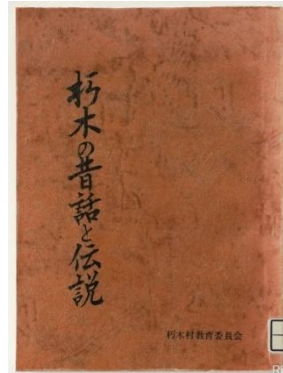 朽木の昔話と伝説
朽木村教育委員会